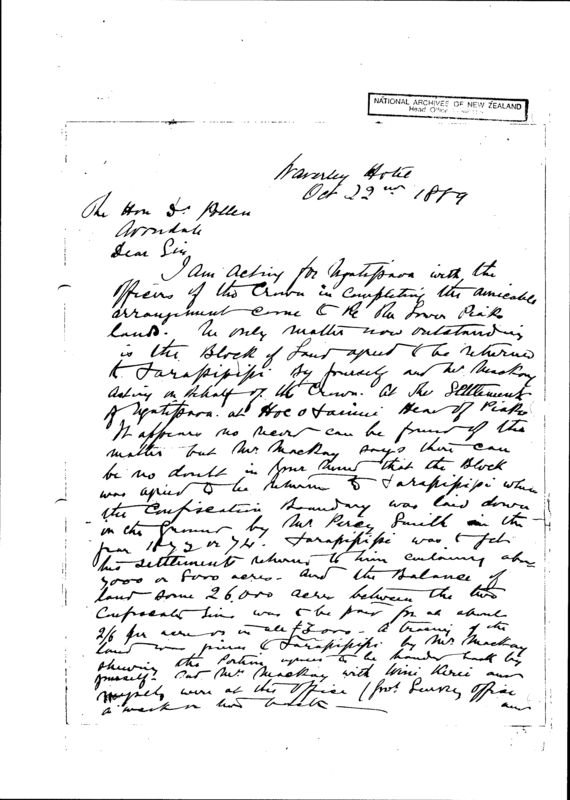 NATIONAL ARCHIVES OF NEW ZEALAND
Head Office
Waverley Hotel
Oct 22nd 1889
The Hon Dr Pollen
Avondale
Dear Sir
I am acting for Ngatipaoa with the
officers of the Crown in completing the amicable
arrangement come to re the Lower Piako
lands. The only matter now outstanding
is the Block of Land agreed to be returned
to Tarapipipi by yourself and Mr Mackay
acting on behalf of the Crown. at the Settlement
of Ngatipaoa at Head of Piako
It appears no record can be found of this
matter but Mr Mackay says there can
be no doubt in your mind that the Block
was agreed to be returned to Tarapipipi when
the Confiscation boundary was laid down
on the ground by Mr Percy Smith in the
year 1873 or 74. Tarapipipi was to get
his settlements returned to him containing about
7000 or 8000 acres. and the balance of
land some 26,000 acres between the two
Confiscate lines was to be paid for at about
2/6 per acre or in all £3,000. a tracing of the
land was given to Tarapipipi by Mr Mackay
shewing the portion agreed to be handed back by
yourself. and Mr Mackay with Wini Kerei and
myself were at the Office (Survey Office
a week or two back